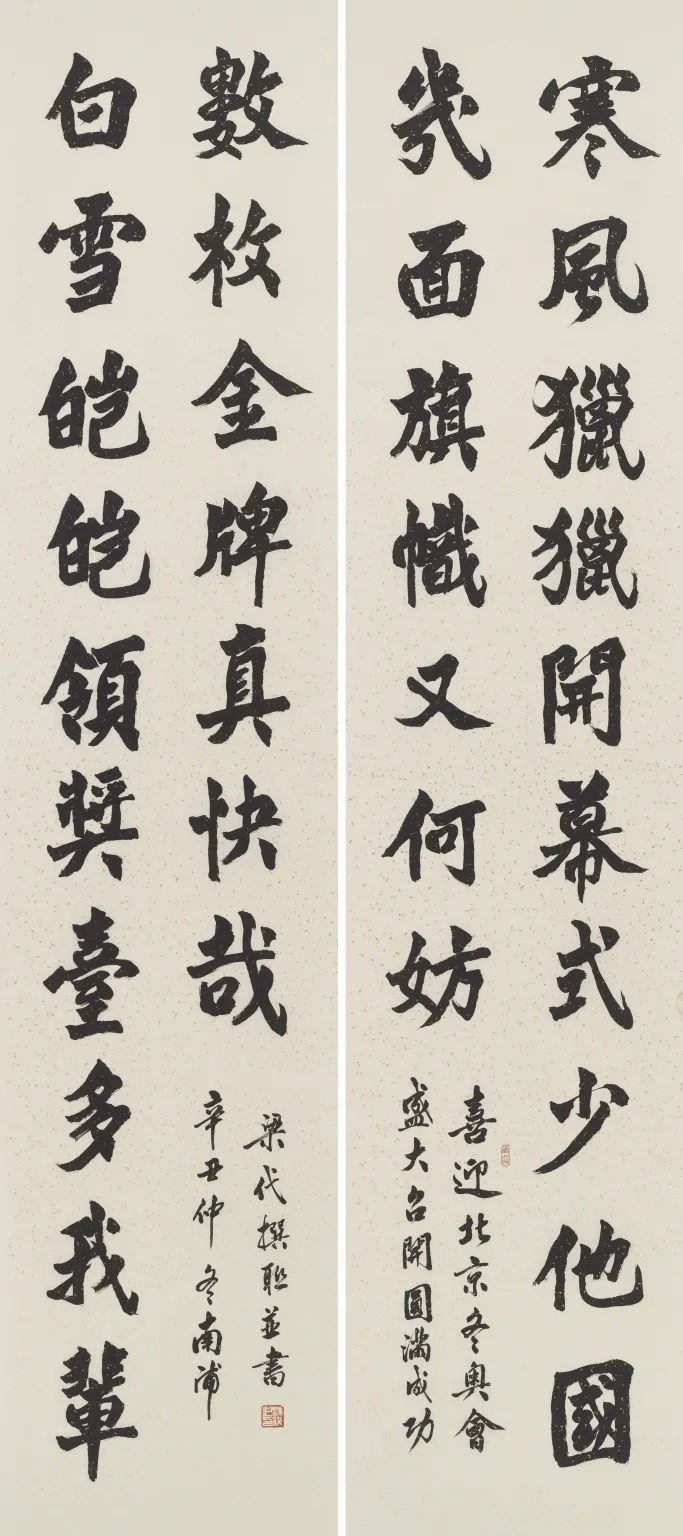 寒風獵獵開幕式少他國
幾面旗幟又何妨
喜迎北京冬奥會
盛大召開圓滿成功
白雪皑皑領獎臺多我輩
數枚金牌真快哉
辛丑仲冬南浦
梁代撰聯並書